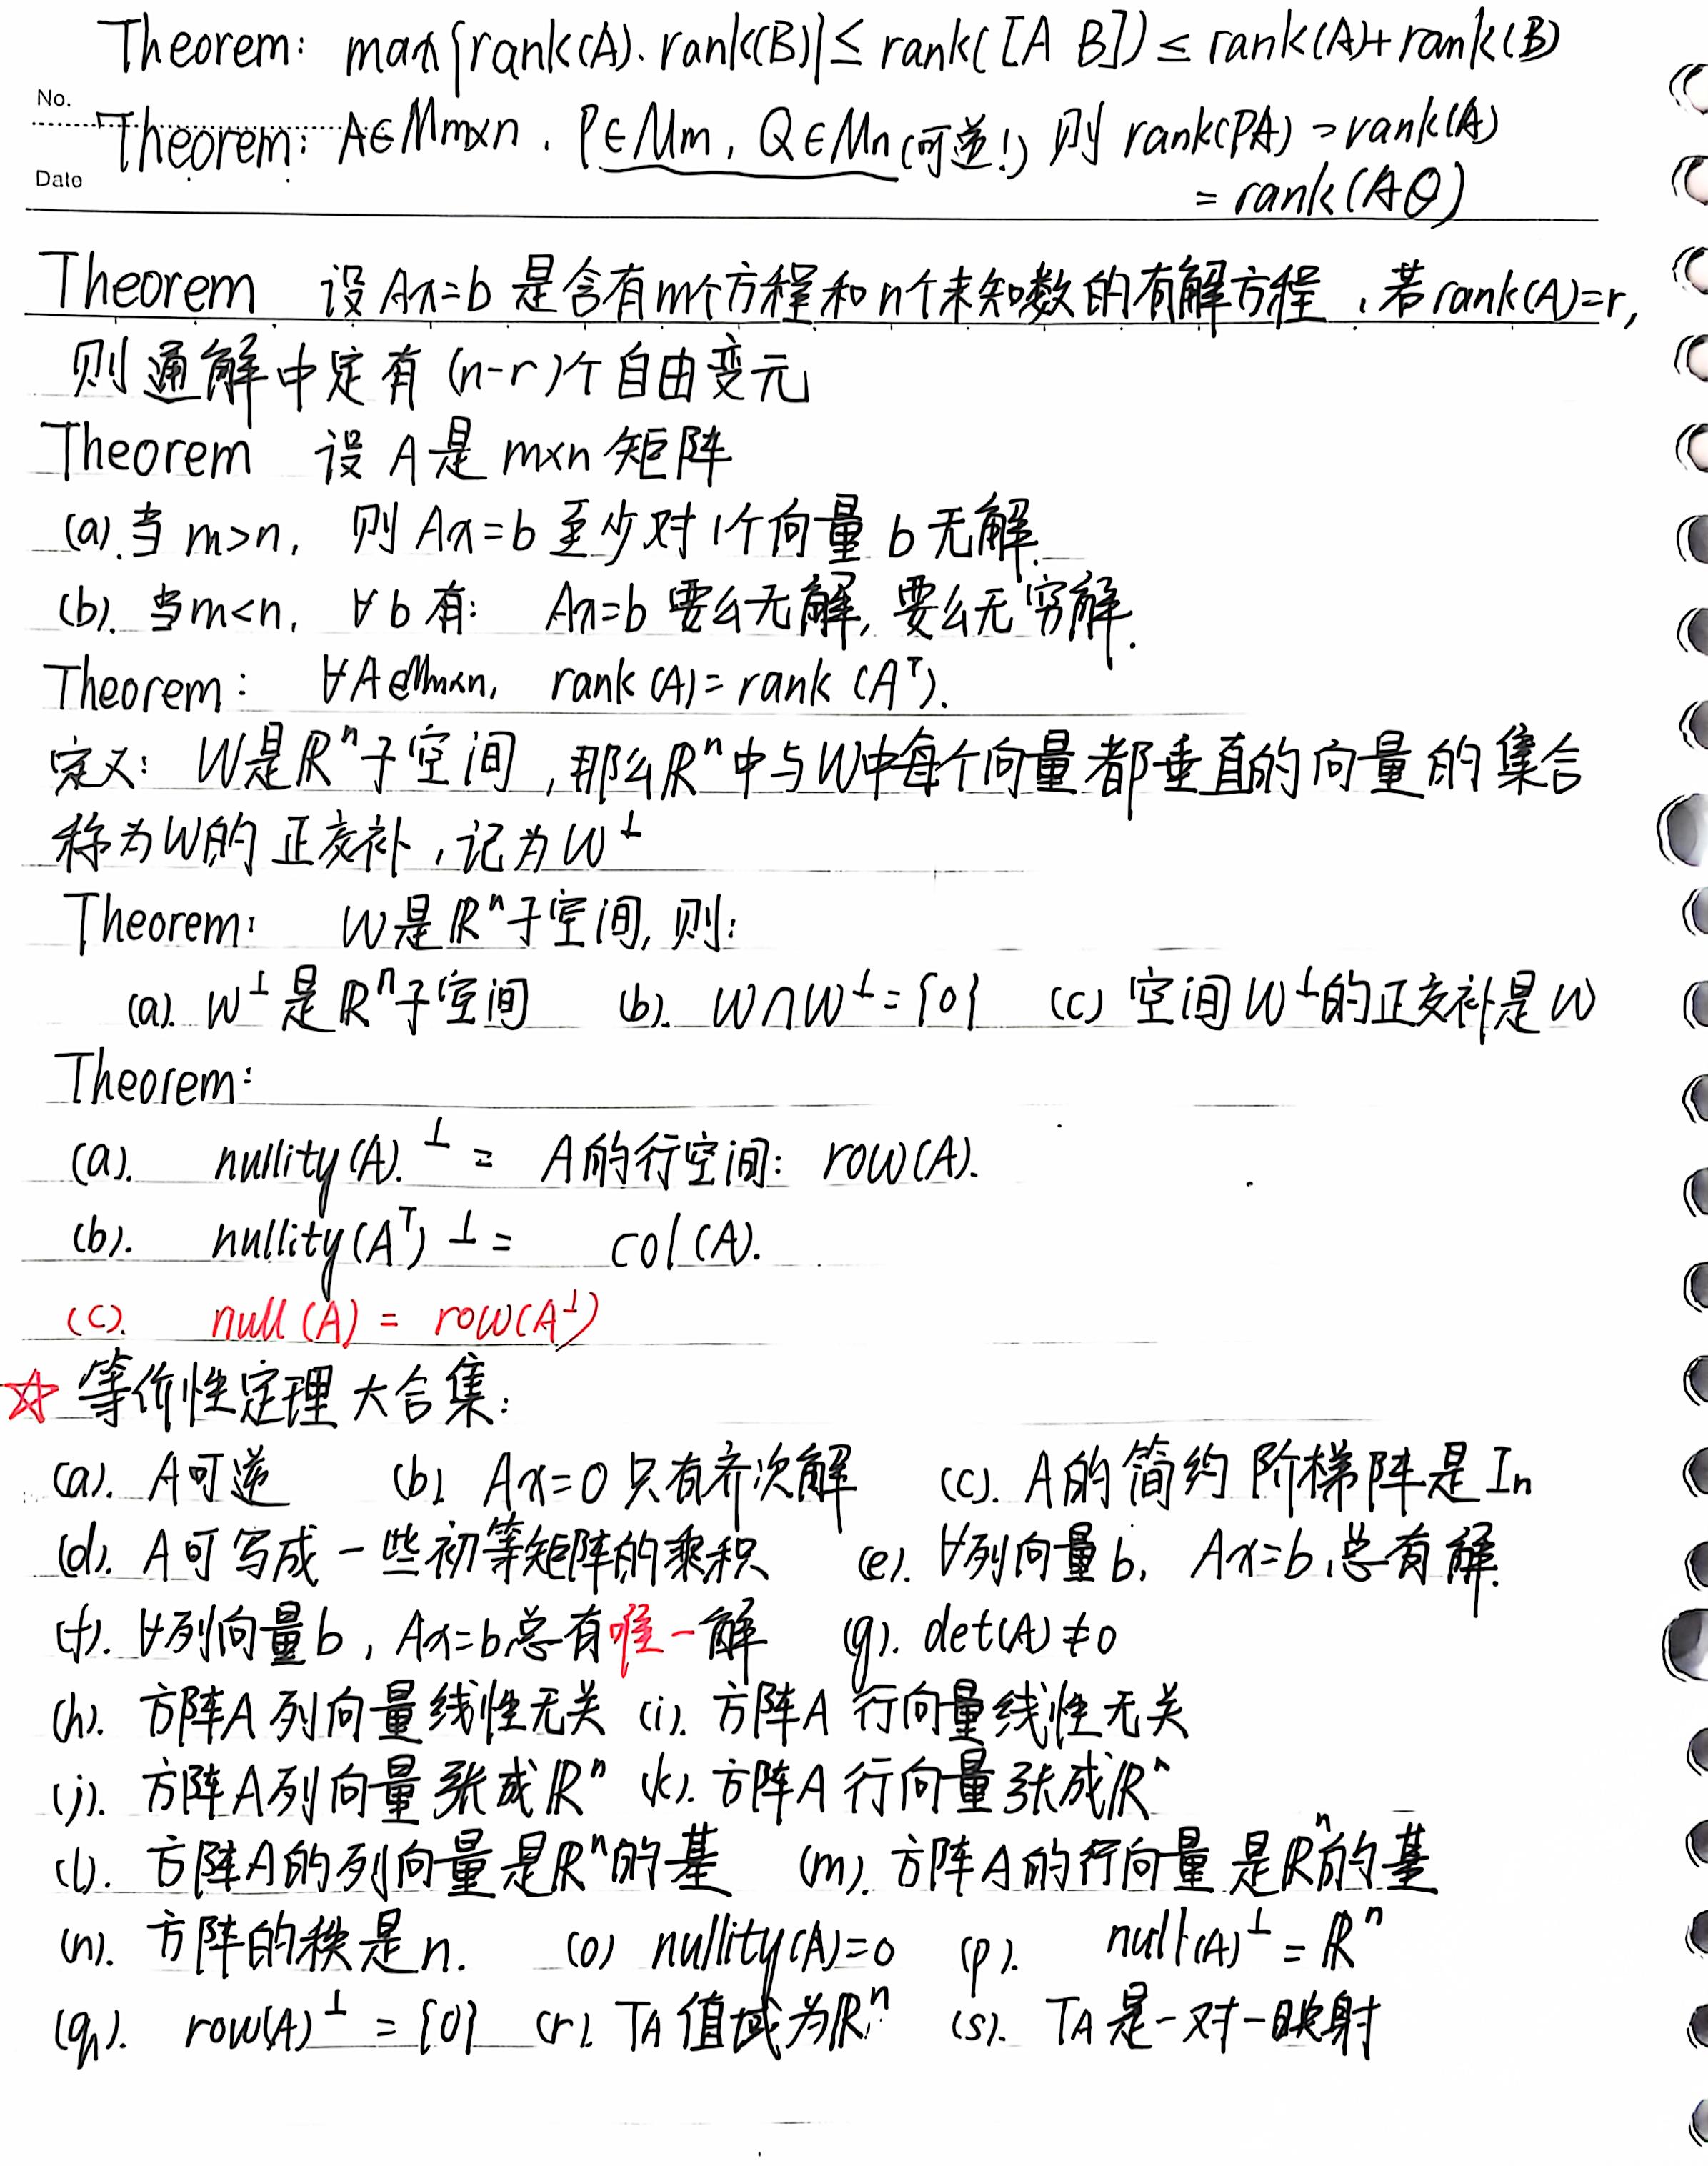 Theorem: max{rank(A), rank(B)} ≤ rank([A B]) ≤ rank(A)+rank(B)
No.
Theorem: A∈Mm×n, P∈Mm, Q∈Mn(可逆!) 则 rank(PA) = rank(A)
Date
= rank(AQ)
Theorem 设Ax=b是含有m个方程和n个未知数的有解方程,若rank(A)=r,
则通解中定有(n-r)个自由变元
Theorem 设A是m×n矩阵
(a).当m>n, 则Ax=b至少对1个向量b无解.
(b).当m<n, ∀b有: Ax=b要么无解,要么无穷解.
Theorem: ∀A∈Mm×n, rank(A)=rank(Aᵀ).
定义: W是ℝⁿ子空间,那么ℝⁿ中与W中每个向量都垂直的向量的集合
称为W的正交补,记为W⊥
Theorem: W是ℝⁿ子空间,则:
(a). W⊥是ℝⁿ子空间 (b). W∩W⊥={0} (c) 空间W⊥的正交补是W
Theorem:
(a). nullity(A).⊥ = A的行空间: row(A).
(b). nullity(Aᵀ)⊥ = col(A).
(c). null(A) = row(A⊥)
☆等价性定理大合集:
(a). A可逆 (b). Ax=0只有齐次解 (c). A的简约阶梯阵是In
(d). A可写成一些初等矩阵的乘积 (e). ∀列向量b, Ax=b总有解.
(f). ∀列向量b, Ax=b总有唯一解 (g). det(A)≠0
(h). 方阵A列向量线性无关 (i). 方阵A行向量线性无关
(j). 方阵A列向量张成ℝⁿ (k). 方阵A行向量张成ℝⁿ
(l). 方阵A的列向量是ℝⁿ的基 (m). 方阵A的行向量是ℝⁿ的基
(n). 方阵的秩是n. (o) nullity(A)=0 (p). null(A)⊥=ℝⁿ
(q). row(A)⊥={0} (r). TA值域为ℝⁿ (s). TA是一对一映射